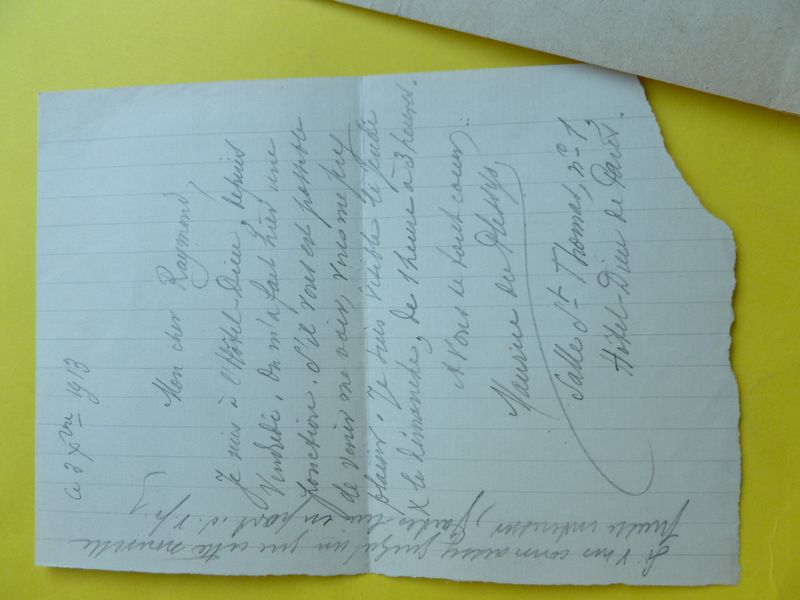 ce 3 Xbre 1913
Mon cher Raymond,
Je suis à l'Hôtel-Dieu, depuis
Vendredi. On m'a fait hier une
ponction. S'il vous est possible
de venir me voir, vous me frez
plaisir. Je suis visible le jeudi
& le dimanche, de 1 heure à 3 heures.
A vous de tout coeur.
Maurice du Plessys
Salle St Thomas, no 1,
Hôtel-Dieu de Paris.
Si vous connaissez quelqu'un que cette nouvelle
puisse intéresser, faites lui en part. s. v. p.